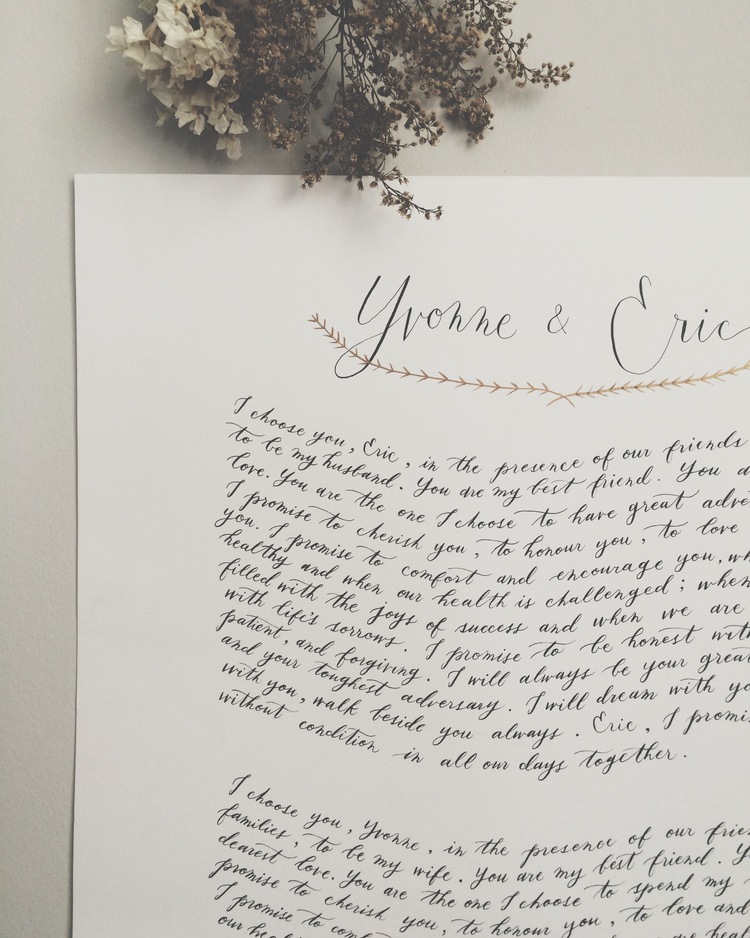 Yvonne & Eric
I choose you, Eric, in the presence of our friends
to be my husband. You are my best friend. You
love. You are the one I choose to have great
I promise to cherish you, to honour you, to love
you. I promise to comfort and encourage you,
healthy and when our health is challenged; when
filled with the joys of success and when we are
with life's sorrows. I promise to be honest
patient, and forgiving. I will always be your
and your toughest adversary. I will dream with
with you, walk beside you always. Eric, I
without condition in all our days together.
I choose you, Yvonne, in the presence of our
families, to be my wife. You are my best friend.
dearest love. You are the one I choose to spend my
promise to cherish you, to honour you, to love and
I promise to
our